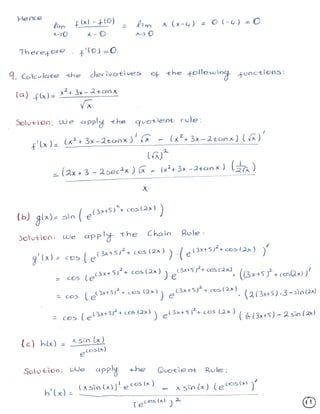 Hence
lim x→0 f(x) - f(0) / x - 0 = lim x→0 x (x-4) = 0 (-4) = 0
Therefore, f'(0) = 0.
9. Calculate the derivatives of the following functions:
(a) f(x) = x² + 3x - 2tanx / √x
Solution: We apply the quotient rule:
f'(x) = (x² + 3x - 2tanx)' √x - (x² + 3x - 2tanx) (√x)' / (√x)²
= (2x + 3 - 2sec²x) √x - (x² + 3x - 2tanx) (1/2√x) / x
(b) g(x) = sin (e^((3x+5)² + cos(2x)))
Solution: We apply the Chain Rule:
g'(x) = cos (e^((3x+5)² + cos(2x))) · (e^((3x+5)² + cos(2x)))'
= cos (e^((3x+5)² + cos(2x))) e^((3x+5)² + cos(2x)) · ((3x+5)² + cos(2x))'
= cos (e^((3x+5)² + cos(2x))) e^((3x+5)² + cos(2x)) · (2(3x+5)·3 - sin(2x)
= cos (e^((3x+5)² + cos(2x))) e^((3x+5)² + cos(2x)) (6(3x+5) - 2 sin(2x)
(c) h(x) = x sin(x) / e^(cos(x))
Solution: We apply the Quotient Rule:
h'(x) = (x sin(x))' e^(cos(x)) - x sin(x) (e^(cos(x)))' / (e^(cos(x)))²
11